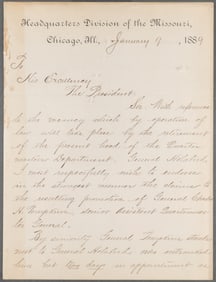 Headquarters Division of the Missouri,
Chicago, Ill., January 9, 1889
To
His Excellency
The President.
Sir: With reference
to the vacancy which by operation of
law will take place by the retirement
of the present head of the Quarter-
masters Department, General Holabird,
I most respectfully wish to endorse
in the strongest manner the claims to
the resulting promotion of General
A. senior Assistant Quartermas-
ter General.
By seniority General stands
next to General Holabird, was outranked
him but days in appointment as